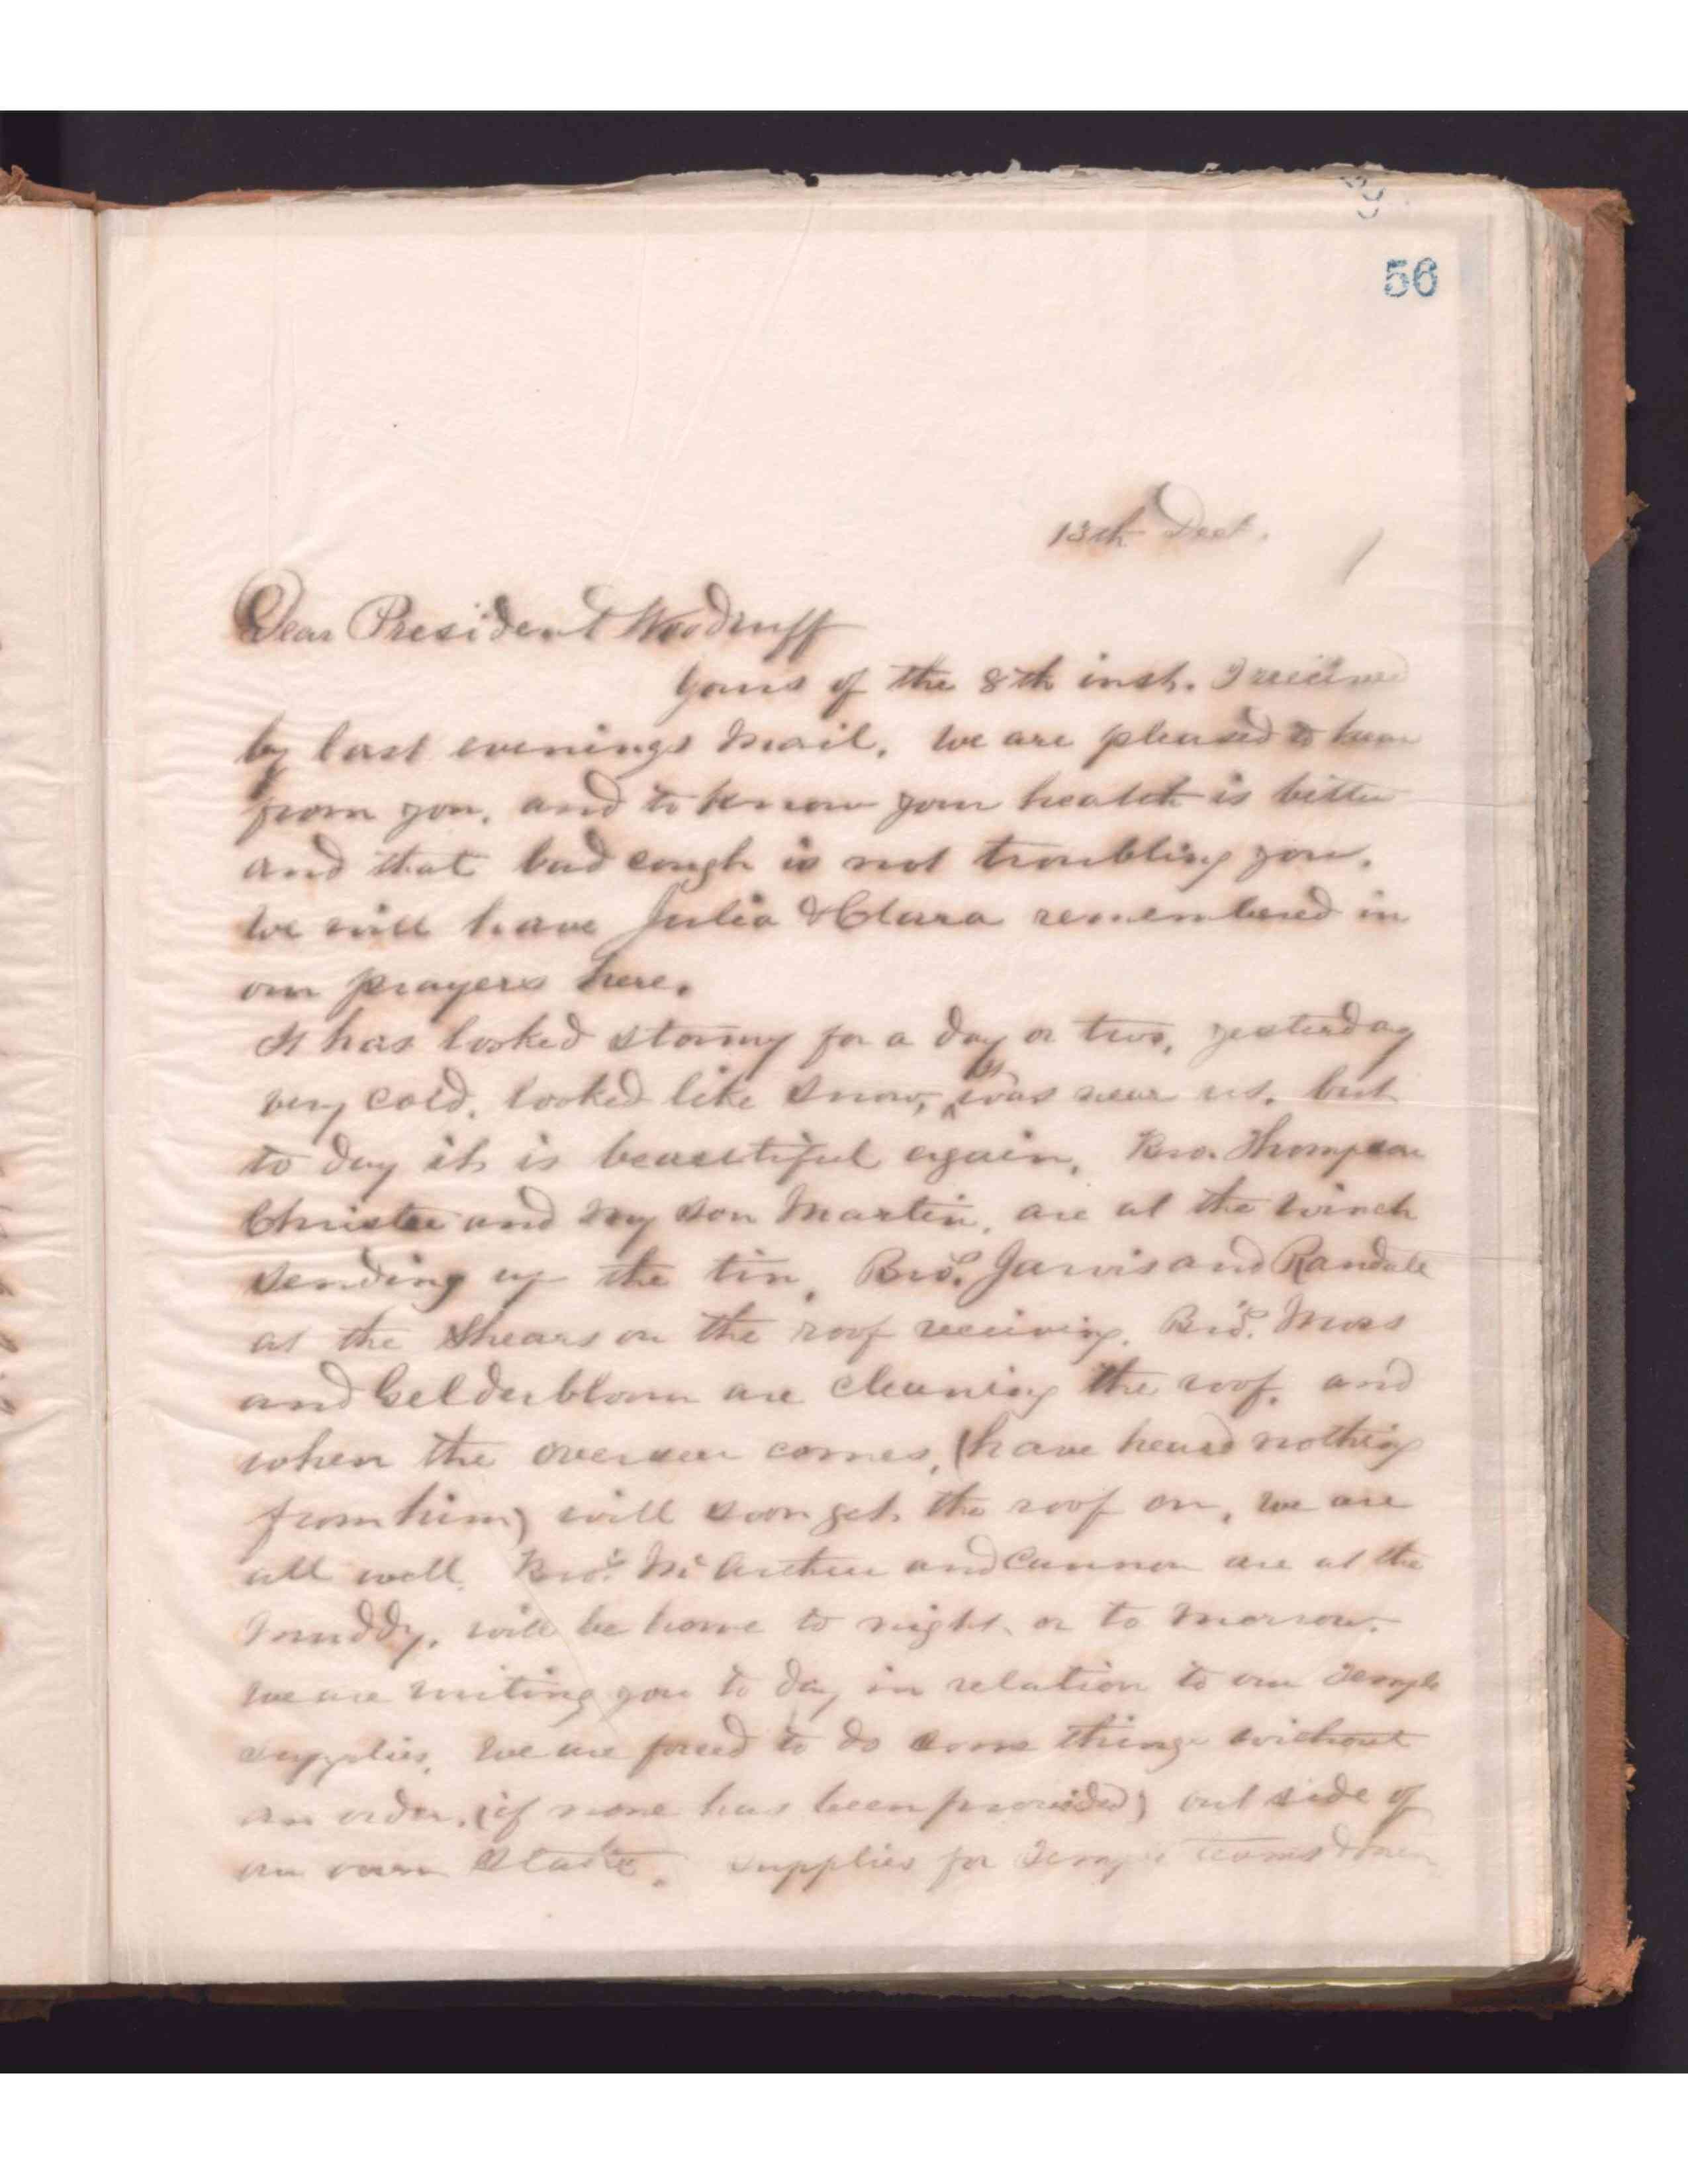 56
13th Dect.
Dear President Woodruff
Yours of the 8th inst. I received
by last evenings mail. We are pleased to hear
from you, and to know your health is better
and that bad cough is not troubling you.
We will have Julia & Clara remembered in
our prayers here.
It has looked stormy for a day or two, yesterday
very cold, looked like snow, was near us, but
to day it is beautiful again. Bro. Thompson
Christie and my son Martin, are at the winch
sending up the tin, Bros. Jarvis and Randall
at the shears on the roof receiving. Bros. Moss
and Gelderbloom are cleaning the roof, and
when the overseer comes, (have heard nothing
from him) will soon get the roof on, we are
all well. Bros. McArthur and Cannon are at the
muddy, will be home to night or to morrow.
We are writing you to day in relation to our Temple
supplies. We are forced to do some things without
an order, (if none has been provided) out side of
our own Stake. Supplies for Temple teams